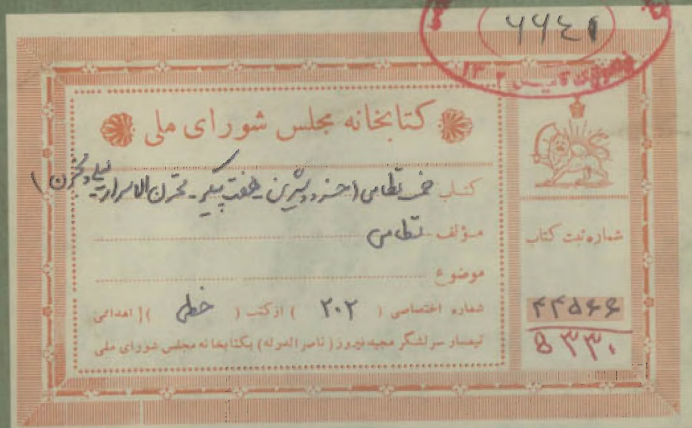 ۷۷۴۱
تأسیس ۱۳۰۲
کتابخانه مجلس شورای ملی
کتاب خمسه نظامی (خسرو و شیرین - هفت پیکر - مخزن الاسرار - لیلی و مجنون)
مؤلف نظامی
موضوع
شماره اختصاصی ( ۲۰۲ ) از کتب ( خطی ) اهدائی
تیمسار سرلشگر مجید فیروز (ناصرالدوله) بکتابخانه مجلس شورای ملی
شماره ثبت کتاب
۴۴۵۶۶
۵۳۳۰